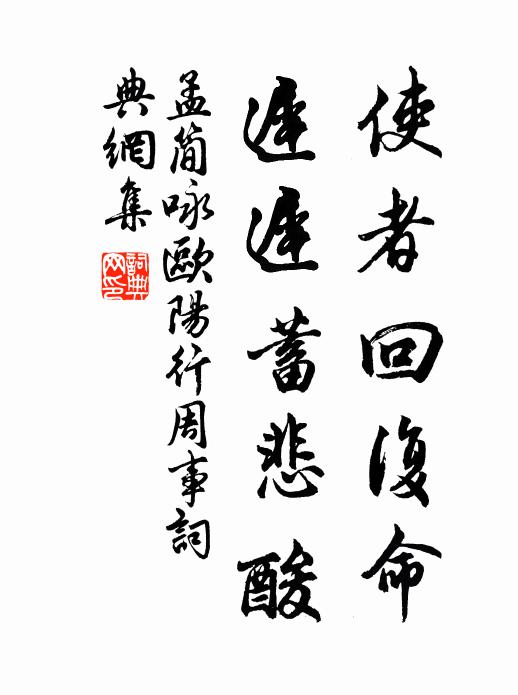 使者回復命
遲遲蓄悲酸
孟簡咏歐陽行周事詞
典網集
詞典网印